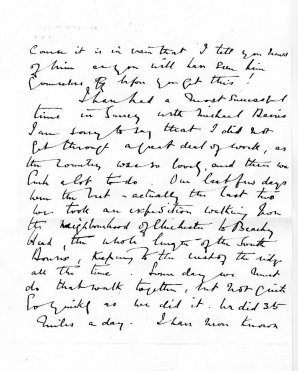 Course it is in vain that I tell you news
of him as you will have seen him
yourselves before you get this!
I have had a most successful
time in Surrey with Michael Davis
I am sorry to say that I did not
get through a great deal of work, as
the country was so lovely, and there was
such a lot to do. Our last few days
were the best - actually the last two
we took an expedition walking from
the neighbourhood of Chichester to Beachy
Head, the whole length of the South
Downs, keeping to the of the ridge
all the time. Some day we must
do that walk together, but not quite
so quickly as we did it. We did 35
miles a day. I have never known